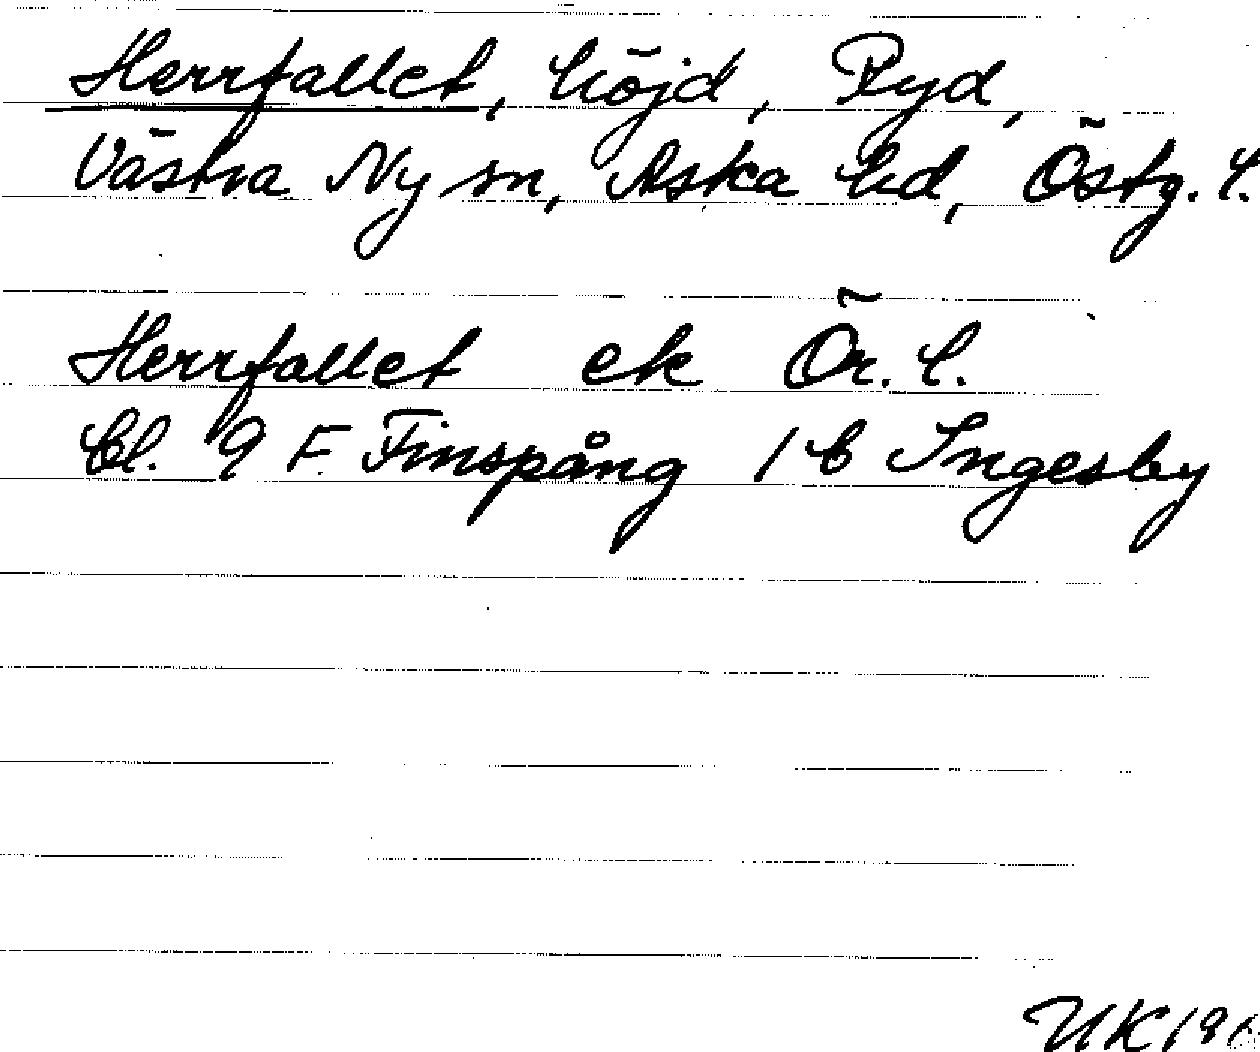 Herrfallet, höjd, Ryd,
Västra Ny sn, Aska hd, Östg. l.
Herrfallet ek Ör. l.
Bl. 9 F Finspång 1 b Ingesby
UK